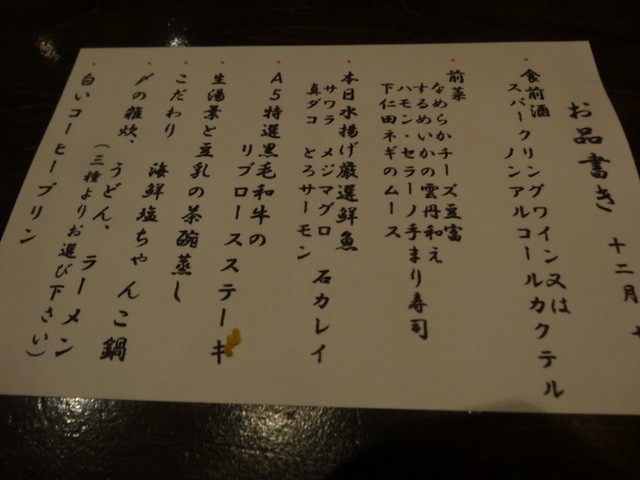 お品書き
十二月
食前酒
スパークリングワイン又は
ノンアルコールカクテル
前菜
なめらかチーズ豆富
するめいかの雲丹和え
ハモン・セラーノ手まり寿司
下仁田ネギのムース
本日水揚げ厳選鮮魚
サワラ メジマグロ 石カレイ
真ダコ とろサーモン
A5特選黒毛和牛の
リブロースステーキ
生湯葉と豆乳の茶碗蒸し
こだわり 海鮮塩ちゃんこ鍋
〆の雑炊、うどん、ラーメン
(三種よりお選び下さい)
白いコーヒープリン